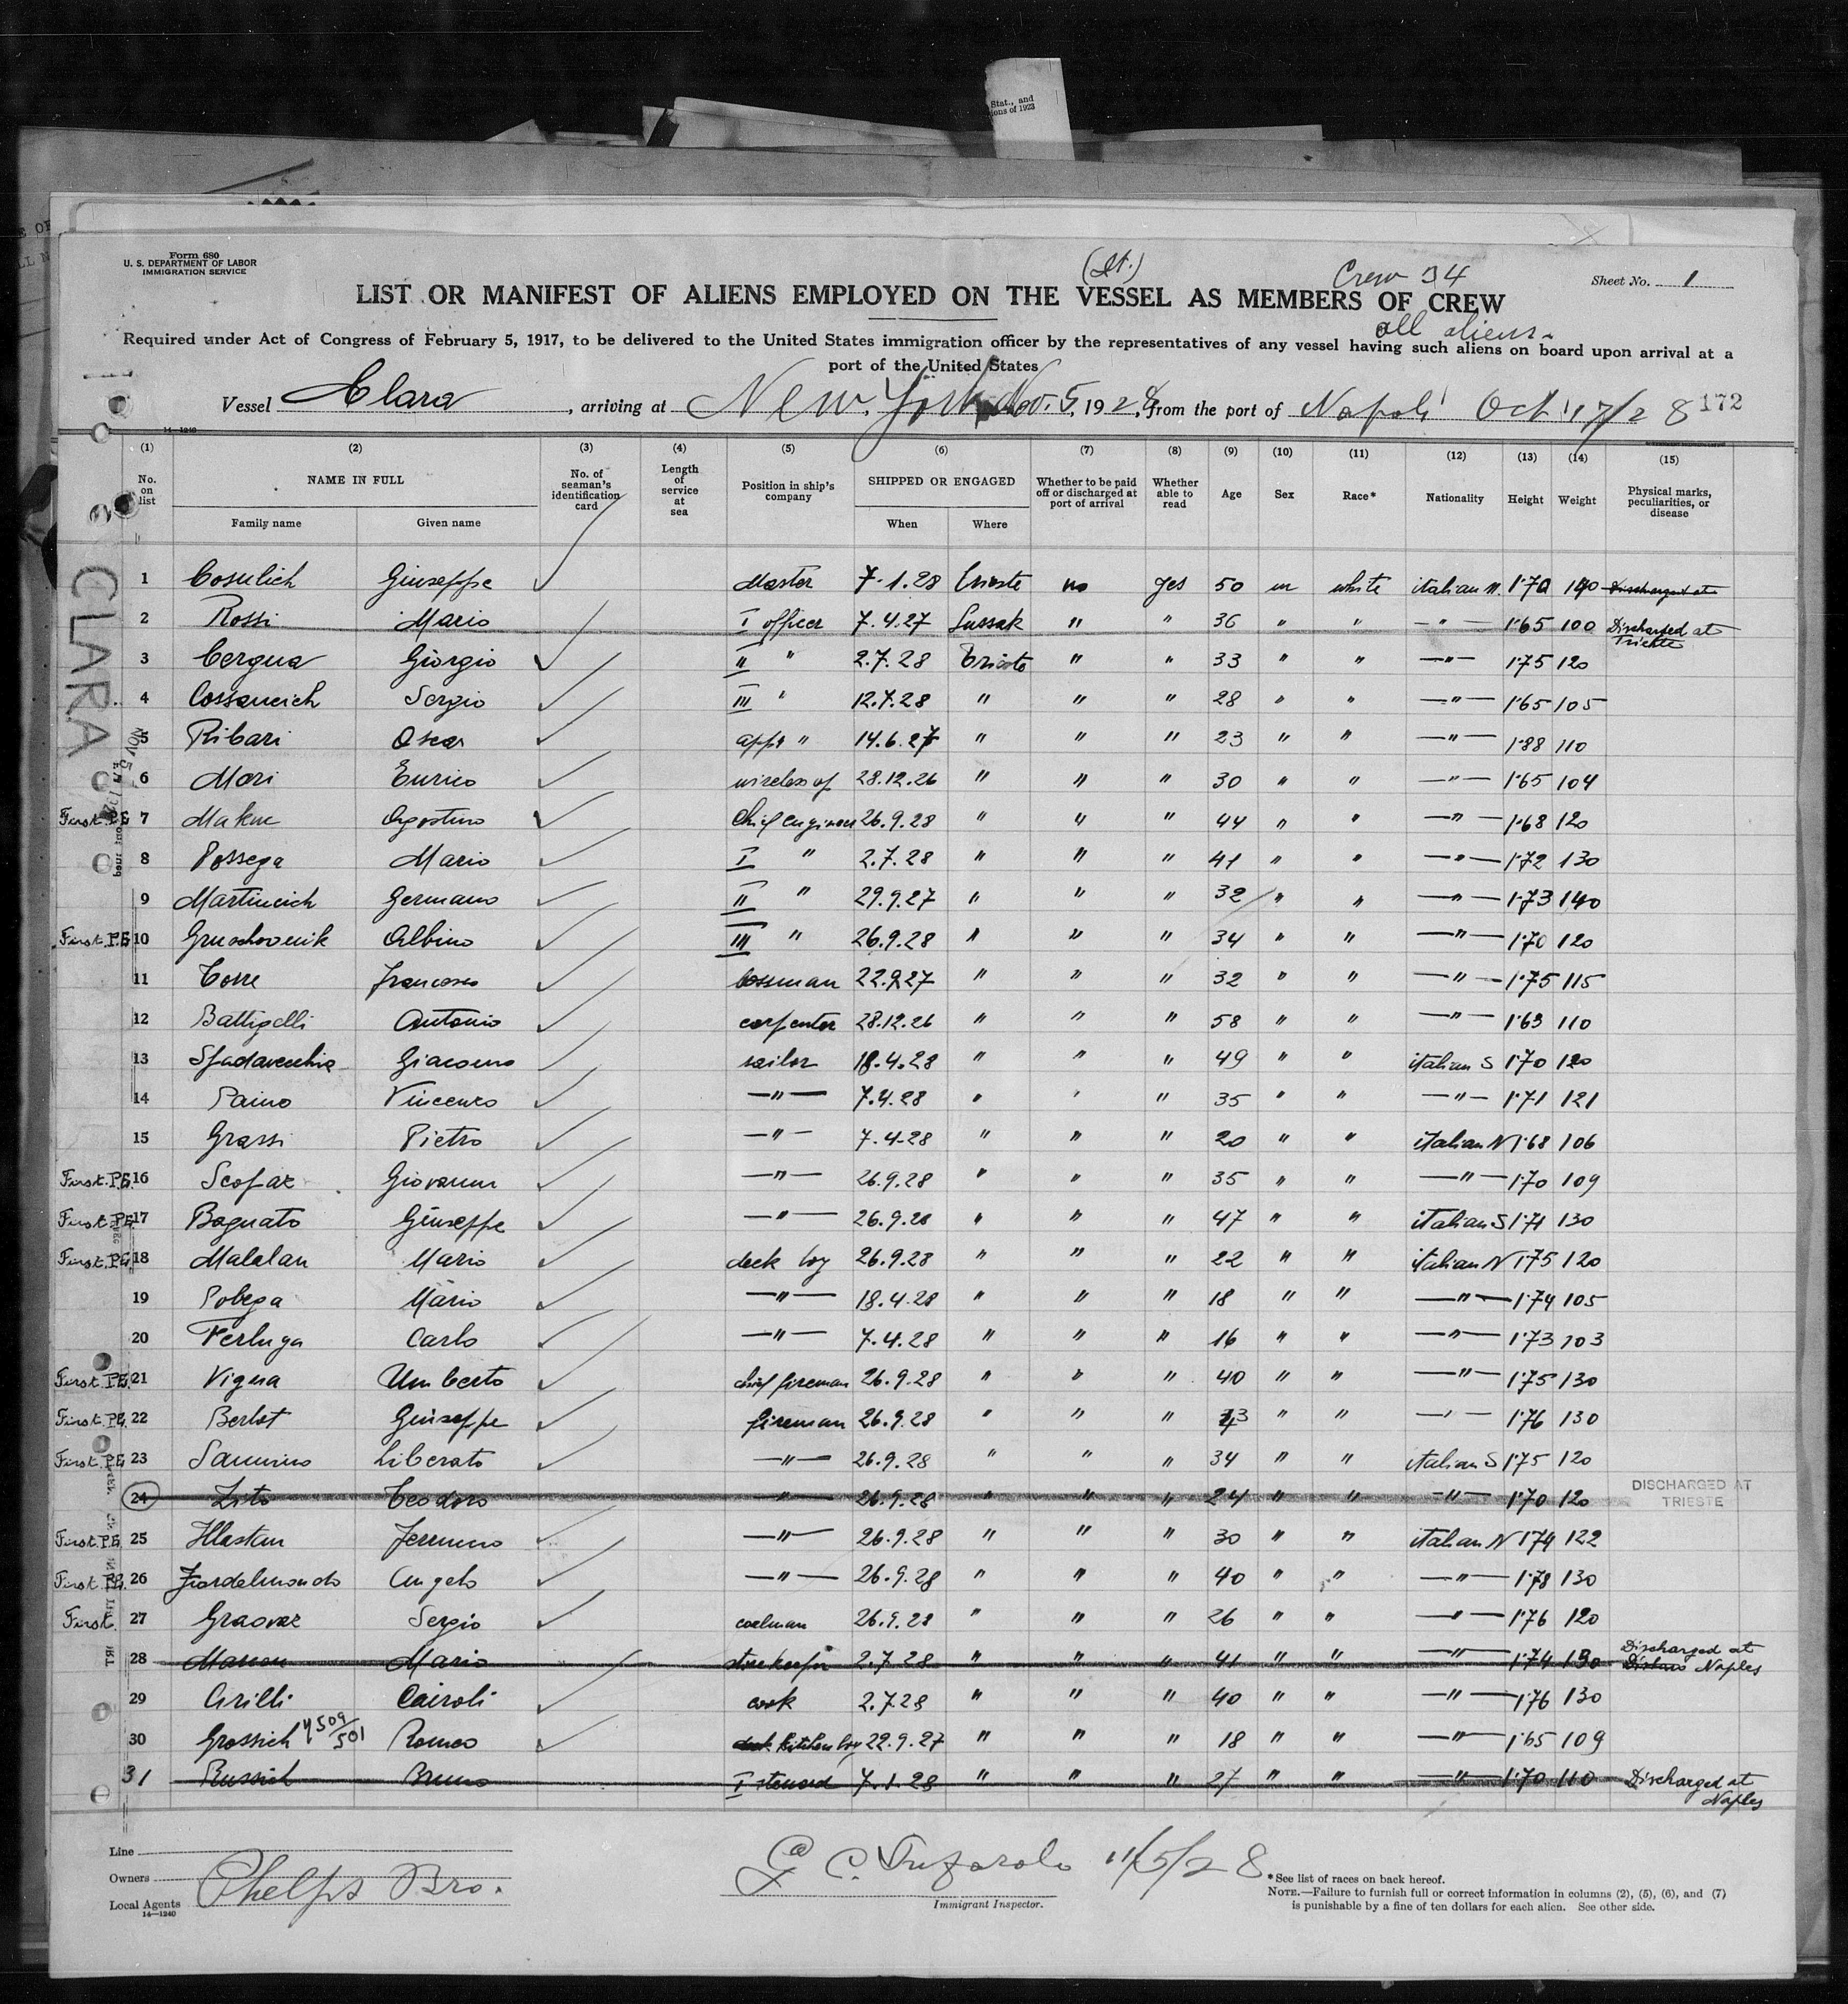 Stat., and
ions of 1923
Form 680
U. S. DEPARTMENT OF LABOR
IMMIGRATION SERVICE
(It.)
Crew 34
Sheet No. 1
LIST OR MANIFEST OF ALIENS EMPLOYED ON THE VESSEL AS MEMBERS OF CREW
all aliens
Required under Act of Congress of February 5, 1917, to be delivered to the United States immigration officer by the representatives of any vessel having such aliens on board upon arrival at a
port of the United States
Vessel Clara, arriving at New York Nov. 5, 1928, from the port of Napoli Oct 17/28 172
14-1240
(1) (2) (3) (4) (5) (6) (7) (8) (9) (10) (11) (12) (13) (14) (15)
No. on list NAME IN FULL No. of seaman's identification card Length of service at sea Position in ship's company SHIPPED OR ENGAGED Whether to be paid off or discharged at port of arrival Whether able to read Age Sex Race* Nationality Height Weight Physical marks, peculiarities, or disease
Family name Given name When Where
CLARA
1 Cosulich Giuseppe Master 7.1.28 Trieste no yes 50 m white italian N. 1.70 140 Discharged at
2 Rossi Mario I officer 7.4.27 Sussak " " 36 " " " 1.65 100 Discharged at Trieste
3 Cergna Giorgio II " 2.7.28 Trieste " " 33 " " " 1.75 120
4 Sergio III " 12.7.28 " " " 28 " " " 1.65 105
5 Ribari Oscar app. " 14.6.27 " " " 23 " " " 1.88 110
6 Mori Enrico wireless of 28.12.26 " " " 30 " " " 1.65 104
First P.E. 7 Makuc Agostino Chief engineer 26.9.28 " " " 44 " " " 1.68 120
8 Possega Mario I " 2.7.28 " " " 41 " " " 1.72 130
9 Martincich Germano II " 29.9.27 " " " 32 " " " 1.73 140
First P.E. 10 Albino III " 26.9.28 " " " 34 " " " 1.70 120
11 Torre Francesco bossman 22.9.27 " " " 32 " " " 1.75 115
12 Battigelli Antonio carpenter 28.12.26 " " " 58 " " " 1.63 110
13 Spadavecchia Giacomo sailor 18.4.28 " " " 49 " " italian S 1.70 120
14 Paino Vincenzo " 7.4.28 " " " 35 " " " 1.71 121
15 Grassi Pietro " 7.4.28 " " " 20 " " italian N 1.68 106
First P.E. 16 Scopaz Giovanni " 26.9.28 " " " 35 " " " 1.70 109
First P.E. 17 Bagnato Giuseppe " 26.9.28 " " " 47 " " italian S 1.71 130
First P.E. 18 Malalan Mario deck boy 26.9.28 " " " 22 " " italian N 1.75 120
19 Pobega Mario " 18.4.28 " " " 18 " " " 1.74 105
20 Ferluga Carlo " 7.4.28 " " " 16 " " " 1.73 103
First P.E. 21 Vigna Umberto chief fireman 26.9.28 " " " 40 " " " 1.75 130
First P.E. 22 Berlot Giuseppe fireman 26.9.28 " " " " " " 1.76 130
First P.E. 23 Sannino Liberato " 26.9.28 " " " 34 " " italian S 1.75 120
24 Zito Teodoro " 26.9.28 " " " 24 " " " 1.70 120 DISCHARGED AT TRIESTE
First P.E. 25 Ferruccio " 26.9.28 " " " 30 " " italian N 1.74 122
First P.E. 26 Fiordelmondo Angelo " 26.9.28 " " " 40 " " " 1.78 130
First 27 Graovaz Sergio coalman 26.9.28 " " " 26 " " " 1.76 120
28 Mario storekeeper 2.7.28 " " " 41 " " " 1.74 130 Discharged at Naples
29 Grilli Cairoli cook 2.7.28 " " " 40 " " " 1.76 130
30 Grossich 4509/501 Romeo kitchen boy 22.9.27 " " " 18 " " " 1.65 109
31 Russich Bruno I steward 7.1.28 " " " 27 " " " 1.70 110 Discharged at Naples
Line
Owners
Local Agents Phelps Bro.
14-1240
11/5/28
Immigrant Inspector.
*See list of races on back hereof.
NOTE.—Failure to furnish full or correct information in columns (2), (5), (6), and (7)
is punishable by a fine of ten dollars for each alien. See other side.